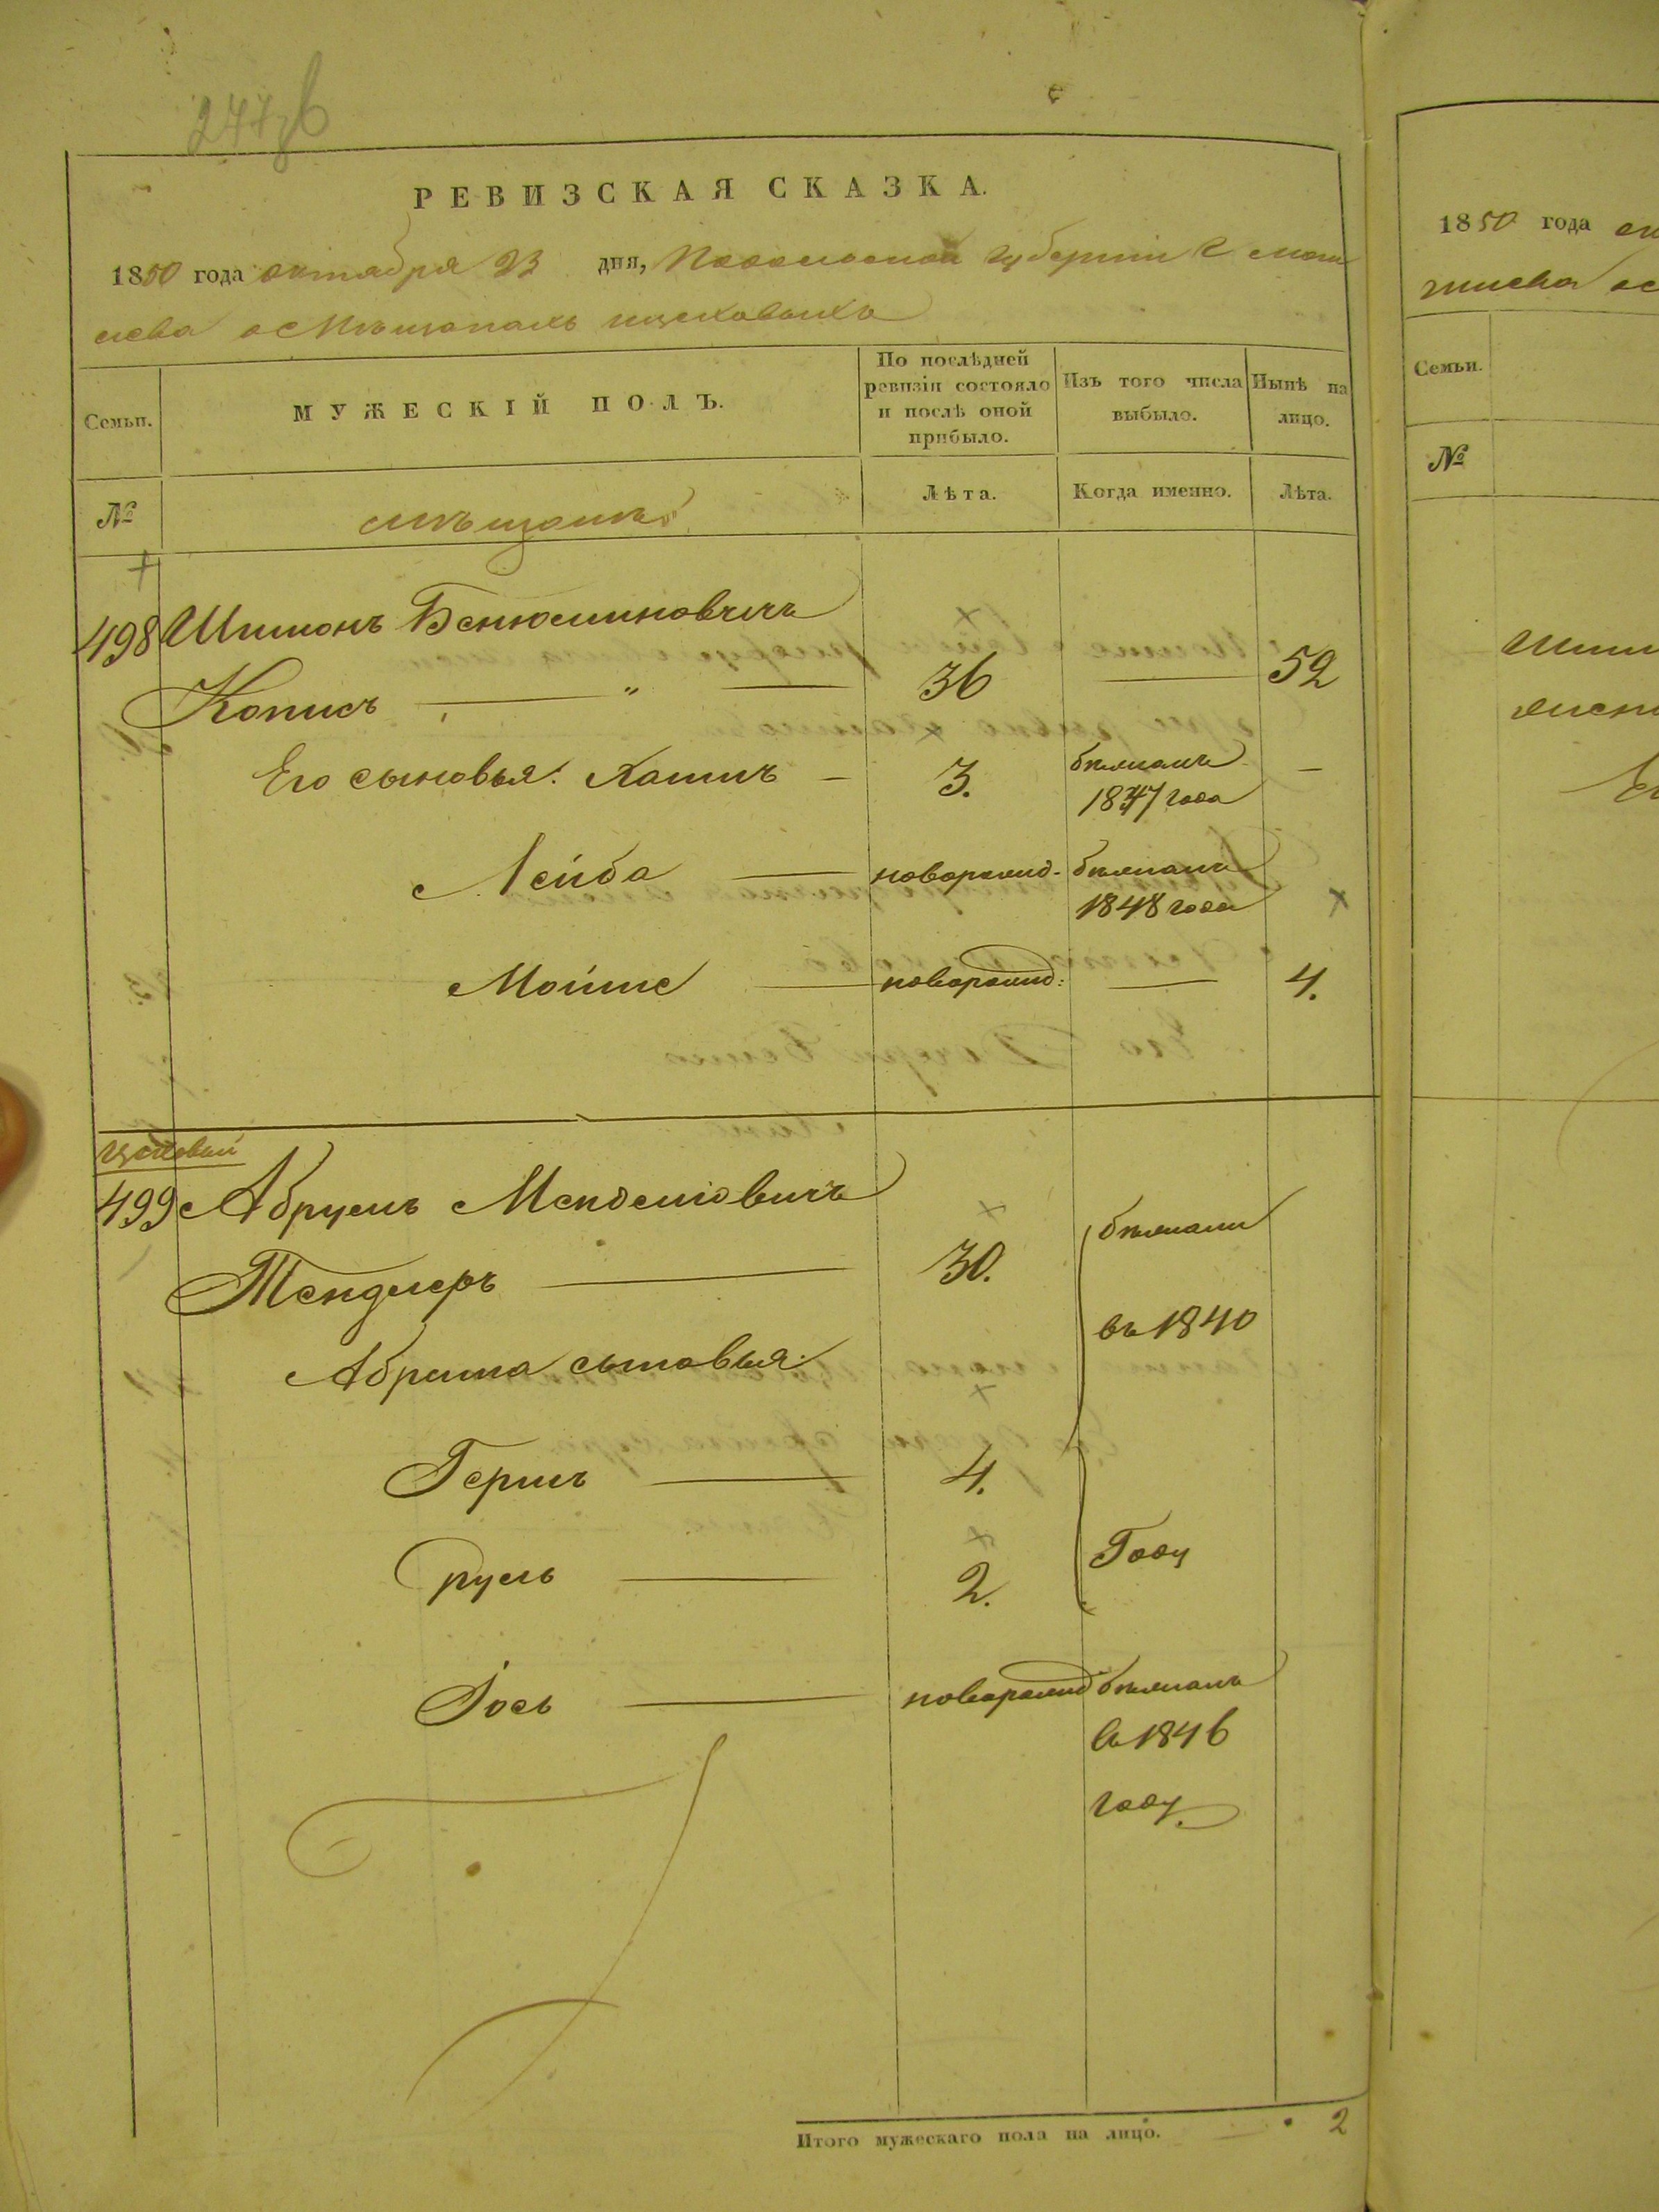 РЕВИЗСКАЯ СКАЗКА.
1850 года октября 23 дня, Подольской губернiи г моги
лева о мѣщанахъ цеховыхъ
Семьи.
МУЖЕСКIЙ ПОЛЪ.
По послѣдней ревизiи состояло и послѣ оной прибыло.
Изъ того числа выбыло.
Нынѣ на лицо.
№
Лѣта.
Когда именно.
Лѣта.
498 Шимонъ Бенюминовичъ
Кописъ 36 — 52
Его сыновья: Хаимъ — 3. бѣжалъ 1847 года —
Лейба — новорожд. бѣжалъ 1848 года
Мойше — новорожд: — 4.
цеховый
499 Абрумъ Менделiовичъ
Тендлеръ — 30. бѣжали
въ 1840
Абрама сыновья:
Гершъ — 4.
Году
Сруль — 2.
Iось — новорожд бѣжалъ
въ 1846
году.
Итого мужескаго пола на лицо. 2
1850 года
Семьи.
№